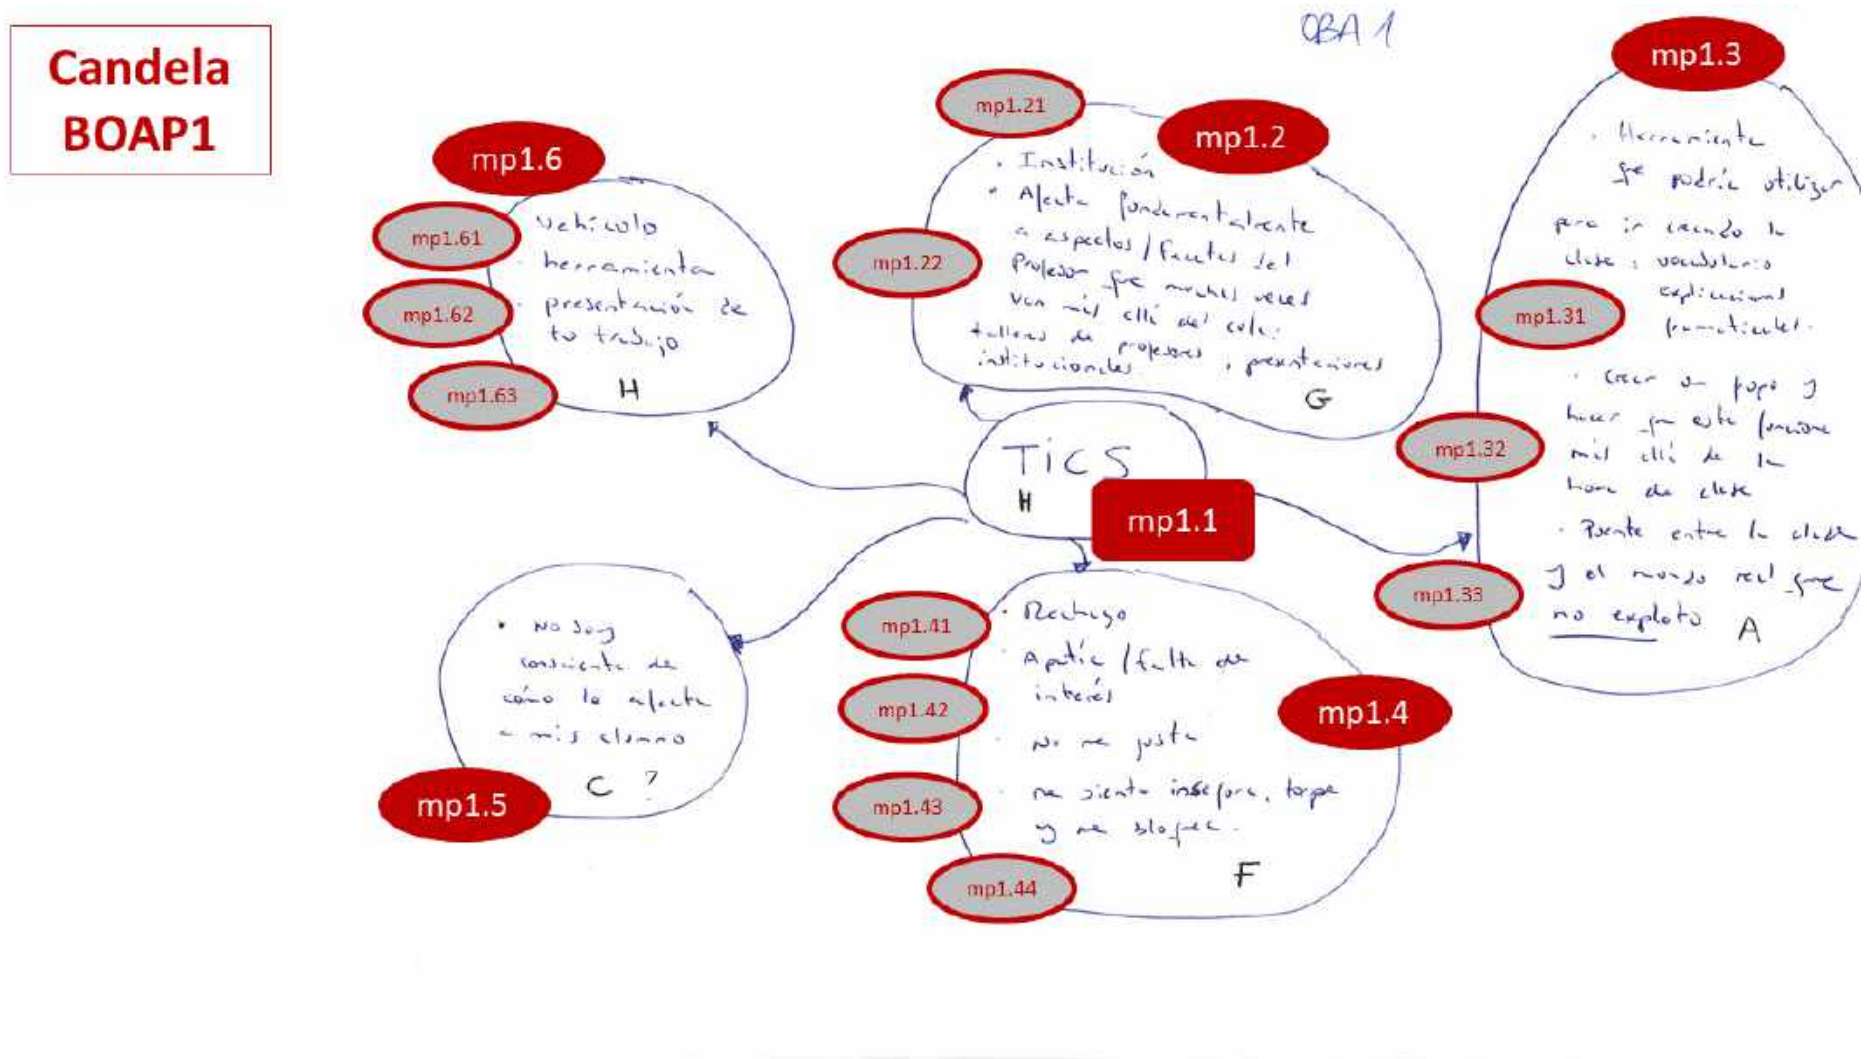 Candela
BOAP1
OBA 1
mp1.6
mp1.61
mp1.62
mp1.63
vehículo
· herramienta
· presentación de
tu trabajo
H
mp1.21
mp1.2
mp1.22
· Institución
· Afecta fundamentalmente
a aspectos / facetas del
Profesor que muchas veces
van más allá del cole:
talleres de profesores, presentaciones
institucionales.
G
mp1.3
mp1.31
mp1.32
mp1.33
· Herramienta
que podría utilizar
para ir creando la
clase: vocabulario
explicaciones
gramaticales.
· Crear un grupo y
hacer que este funcione
más allá de la
hora de clase
· Puente entre la clase
y el mundo real que
no exploto
A
TICS
H
mp1.1
mp1.5
· No soy
consciente de
cómo le afecta
a mis alumno
C ?
mp1.41
mp1.42
mp1.43
mp1.44
mp1.4
· Rechazo
· Apatía / falta de
interés
· No me gusta
· me siento insegura, torpe
y me bloqueo.
F